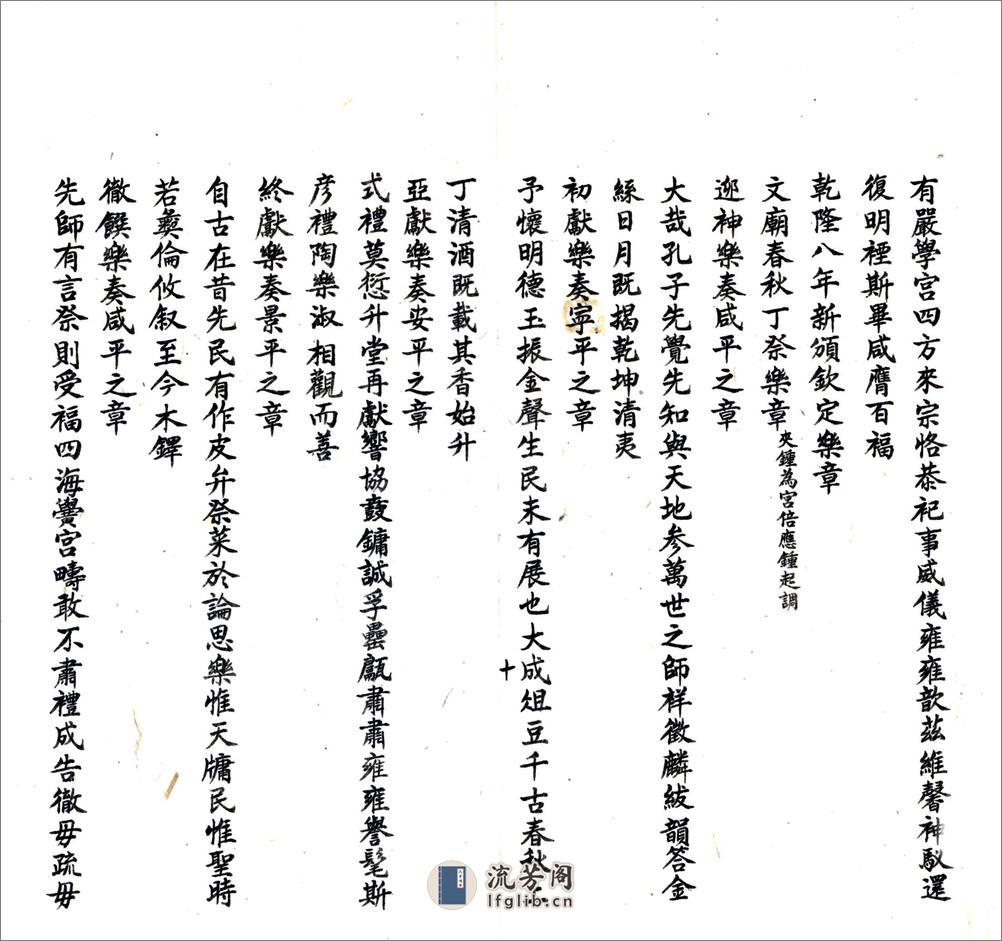 有嚴學宮四方來宗恪恭祀事威儀雍雍歆茲維馨神馭還
復明禋斯畢咸膺百福
乾隆八年新頒欽定樂章
文廟春秋丁祭樂章夾鍾為宮倍應鍾起調
迎神樂奏咸平之章
大哉孔子先覺先知與天地參萬世之師祥徵麟紱韻答金
絲日月既揭乾坤清夷
初獻樂奏寧平之章
予懷明德玉振金聲生民未有展也大成俎豆千古春秋上
十
丁清酒既載其香始升
亞獻樂奏安平之章
式禮莫愆升堂再獻響協鼖鏞誠孚罍甗肅肅雍雍譽髦斯
彥禮陶樂淑相觀而善
終獻樂奏景平之章
自古在昔先民有作皮弁祭菜於論思樂惟天牖民惟聖時
若彝倫攸敘至今木鐸
徹饌樂奏咸平之章
先師有言祭則受福四海黌宮疇敢不肅禮成告徹毋疏毋
流芳阁
lfglib.cn